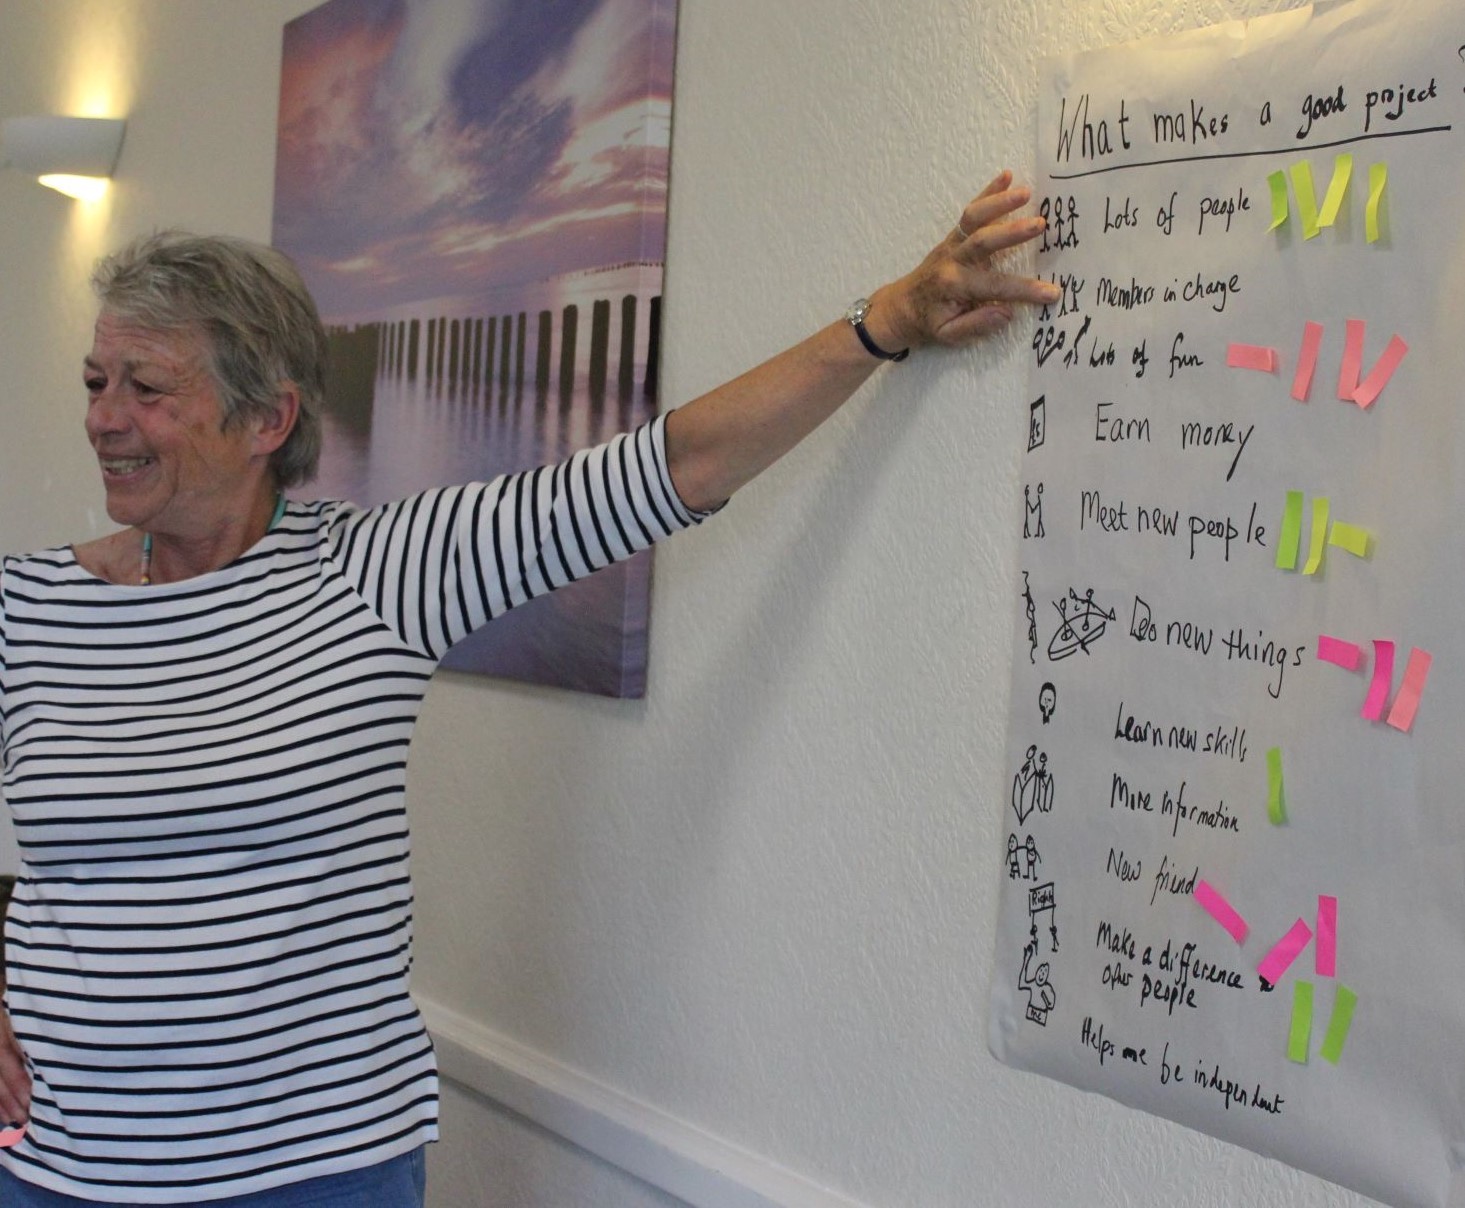 What makes a good project ?
Lots of people
Members in charge
Lots of fun
Earn money
Meet new people
Do new things
Learn new skills
More information
New friend
Right
Make a difference
other people
Helps me be independent
ME